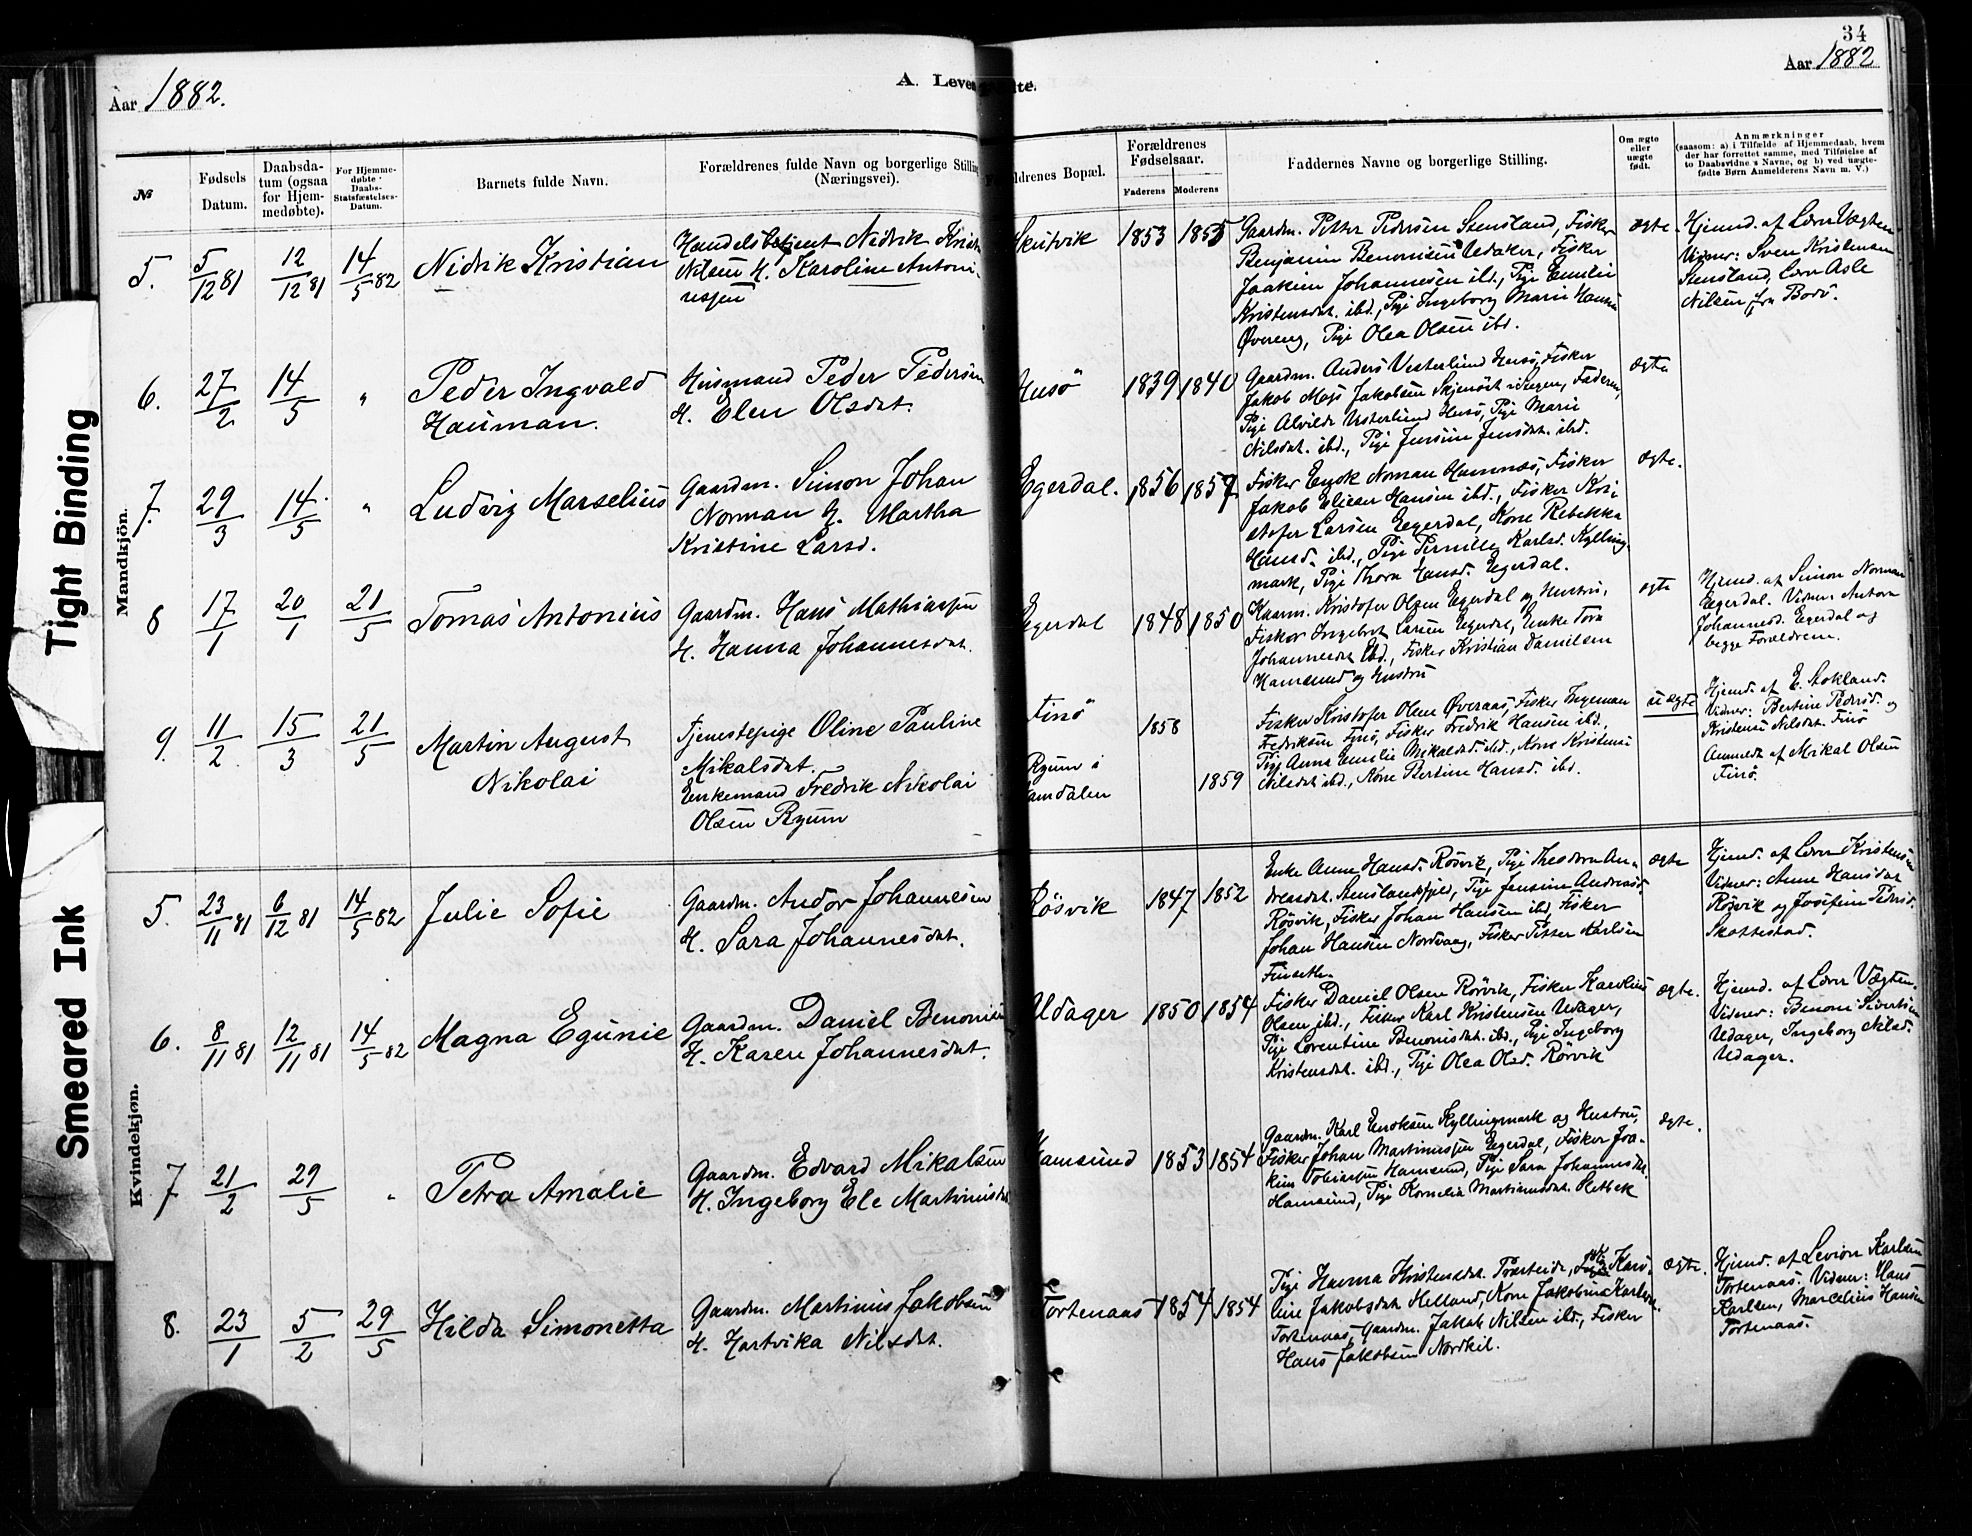 34
Aar 1882.
A. Leve
te.
Aar 1882
№
Fødsels Datum.
Daabsdatum (ogsaa for Hjemmedøbte).
For Hjemmedøbte Daabs-Statsfæstelses-Datum.
Barnets fulde Navn.
Forældrenes fulde Navn og borgerlige Stilling (Næringsvei).
ldrenes Bopæl.
Forældrenes Fødselsaar.
Faderens
Moderens
Faddernes Navne og borgerlige Stilling.
Om ægte eller uægte født.
Anmærkninger
(saasom: a) i Tilfælde af Hjemmedaab, hvem
der har forrettet samme, med Tilføielse af
to Daabsvidne's Navne, og b) ved uægte-
fødte Børn Anmelderens Navn m. V.)
Mandkjøn.
5. 5/12 81 12/12 81 14/5 82 Nidrik Kristian
Handelsbetjent Nidrik Krist
Nilsen H. Karoline Antoni
nssen
Skutvik 1853 1855
Gaardm. Petter Pedersen Stensland, Fisker
Benjamin Benonisen Udaker, Fisker
Joakim Johannesen ibd., Pige Emilie
Kristensdat. ibd., Pige Ingeborg Marie Hansen
Øvereng, Pige Olea Olsen ibd.
ægte
Hjemd. af Lærer Vægten
Vidner: Sven Kristensen
Stensland, Lærer Asle
Nilsen, fra Bodø.
6. 27/2 14/5 " Peder Ingvald
Hauman.
Husmand Peder Pedersen
H. Elen Olsdat.
Husö 1839 1840
Gaardm. Anders Vesterlund Husö, Fisker
Jakob Mejs Jakobsen Skjenöst, Faderen,
Pige Alvilde Vesterlund Husö, Pige Marie
Nilsdat. ibd., Pige Jensine Jensdat. ibd.
ægte
7. 29/3 14/5 " Ludvig Marselius
Gaardm. Simon Johan
Norman H. Martha
Kristine Larsd.
Egerdal. 1856 1857
Fisker Enok Norman Hamnæs, Fisker
Jakob Hansen ibd., Fisker Kri
stofer Larsen Egerdal, Kone Rebekka
Hansd. ibd., Pige Pernille Karlsd. Kylling
mark, Pige Thora Hansd. Egerdal.
ægte.
8 17/1 20/1 21/5 Tomas Antonius
Gaardm. Hans Mathiassen
H. Hanna Johannesdat.
Egerdal 1848 1850
Kaarm. Kristofer Olsen Egerdal og Hustru,
Fisker Ingebret Larsen Egerdal, Enke Tora
Johannesdat ibd., Fisker Kristian Danielsen
Hamsund og Hustru
ægte
Hjemd. af Simon Norman
Egerdal. Vidner: Anton
Johannesd. Egerdal og
begge Forældrene.
9. 11/2 15/3 21/5 Martin August
Nikolai
Tjenestepige Oline Pauline
Mikalsdat.
Enkemand Fredrik Nikolai
Olsen Ryum
Finö
Ryum i
Namdalen
1858
1859
Fisker Kristofer Olsen Øveraas, Fisker Ingeman
Fredriksen Finö, Fisker Fredrik Hansen ibd.,
Pige Anna Emilie Mikalsdat. ibd., Kone Kristense
Nilsdat ibd., Kone Bertine Hansd. ibd.
uægte
Hjemd. af E. Stokland.
Vidner: Bertine Pedersd. og
Kristense Nilsdat. Finö
Anmeldt af Mikal Olsen
Finö.
Kvindekjøn.
5. 23/11 81 6/12 81 14/5 82 Julie Sofie
Gaardm. Andor Johannesen
H. Sara Johannesdat.
Rösvik 1847 1852
Enke Anne Hansd. Rösvik, Pige Theodora An-
dreasdat. Stenslandsfjeld, Pige Jensine Andreasd
Rösvik, Fisker Johan Hansen ibd, Fisker
Johan Hansen Nordvaag, Fisker Petter Karlsen
Finseth.
ægte
Hjemd. af Lærer Kristensen
Vidner: Anne Hansdat
Rösvik og Josefine Pedersd.
Skottestad.
6. 8/11 81 12/11 81 14/5 82 Magna Egunie
Gaardm. Daniel Benonisen
H. Karen Johannesdat.
Udager 1850 1854
Fisker Daniel Olsen Rörvik, Fisker Karolius
Olsen ibd., Fisker Karl Kristensen Udager,
Pige Lorentine Benonisdat. ibd., Pige Ingeborg
Kristensdat. ibd., Pige Olea Olsd. Rörvik
ægte.
Hjemd. af Lærer Vægten.
Vidner: Benoni Sivertsen
Udager, Ingeborg Nilsd.
Udager.
7 21/2 29/5 " Petra Amalie
Gaardm. Edvard Mikalsen
H. Ingeborg Ele Martinusdat
Hamsund 1853 1854
Gaardm. Karl Enoksen Kyllingmark og Hustru,
Fisker Johan Martinussen Egerdal, Fisker Joa-
kim Tobiassen Hamsund, Pige Sara Johannesdt.
Hamsund, Pige Kornelia Martinusdat. Sletbek
ægte.
8. 23/1 5/2 29/5 Hilda Simonetta
Gaardm. Martinus Jakobsen
H. Hartvika Nilsdat.
Tortenaas 1854 1854
Pige Hanna Kristensdat. Karo-
line Jakobsdat. Helland, Kone Jakobine Karlsd.
Tortenaas, Gaardm. Jakob Nilsen ibd., Fisker
Hans Jakobsen Nordkil.
ægte.
Hjemd. af Levion Karlsen
Tortenaas. Vidner: Hans
Karlsen, Marcelius Hansen
Tortenaas.
Tight Binding
Smeared Ink